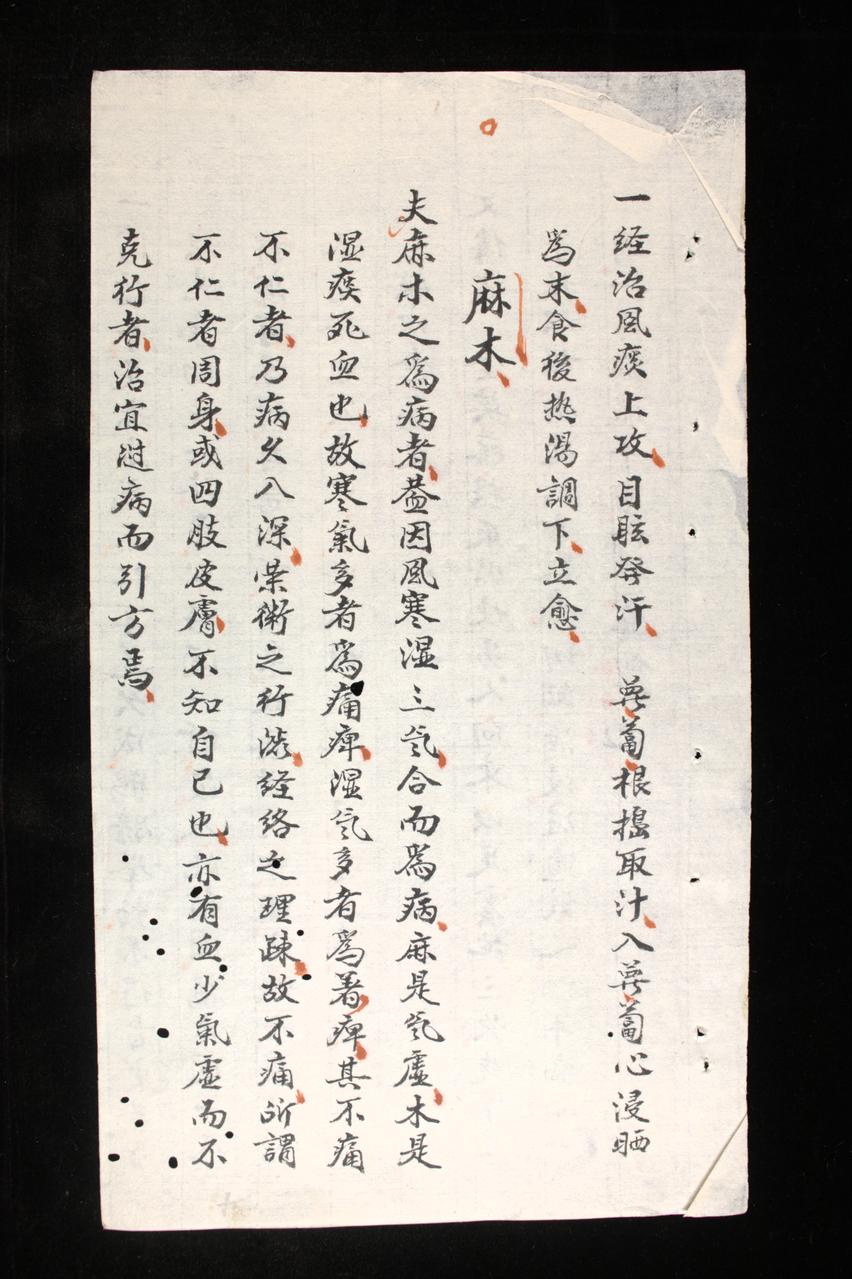 一経治風痰上攻目眩發汗 萆蔔根搗取汁入萆蔔心浸晒
為末食後热湯調下立愈
麻木
夫麻木之為病者蓋因風寒湿三気合而為病麻是気虚木是
湿痰死血也故寒氣多者為痛痺湿気多者為着痺其不痛
不仁者乃病久入深荣術之行澁経络之理踈故不痛所謂
不仁者周身或四肢皮膚不知自己也亦有血少氣虚而不
克行者治宜对病而引方焉